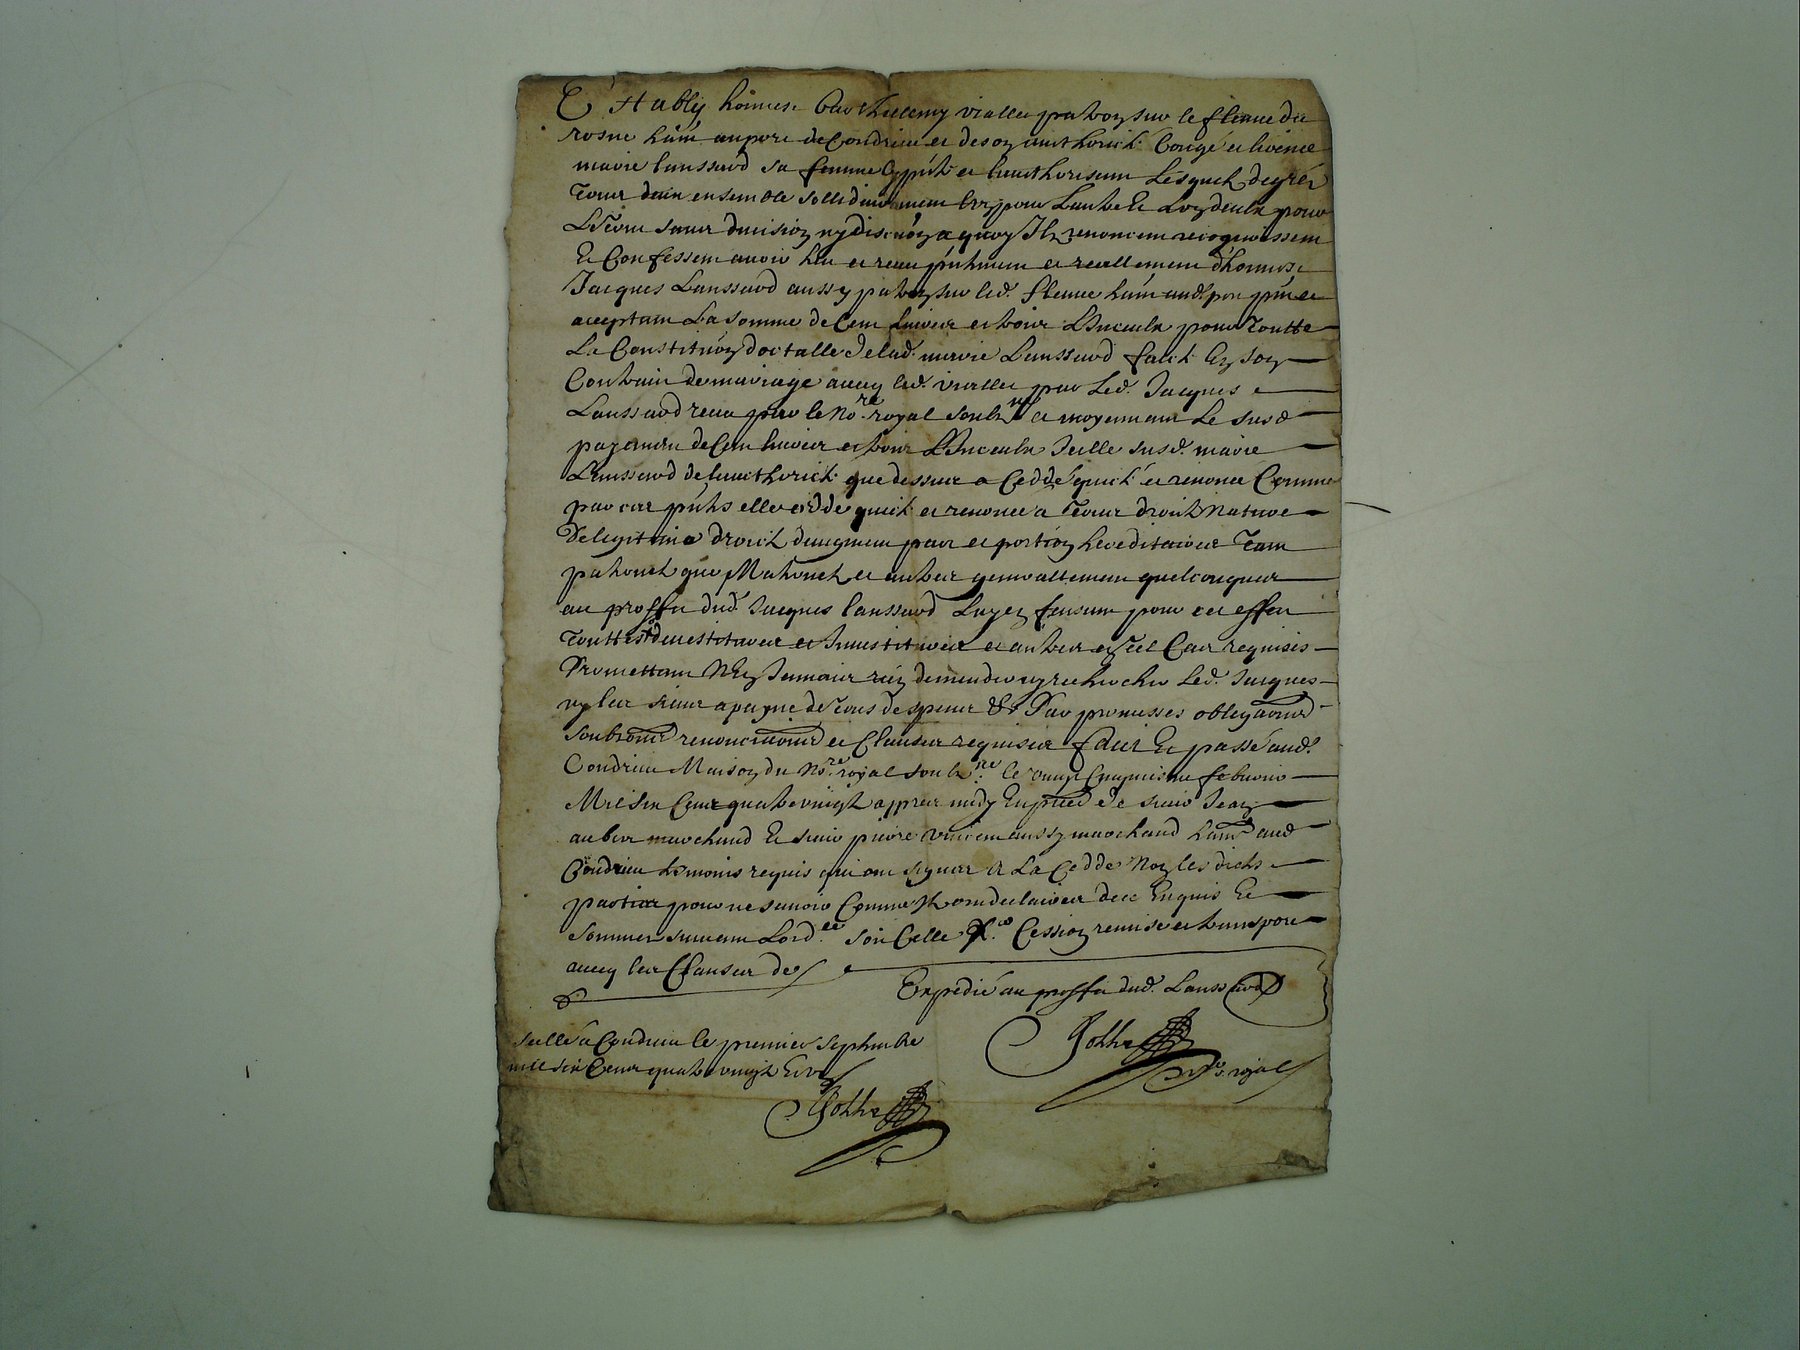 Establÿ honneste barthelemy viallet patron sur le fleuve du
rosne ham au port de Condrieu et de son aucthorité Congé et licence
marie laussard sa femme pñte et lauthorisant Lesquels de gré
Tous deux ensemble sollidairement lun pour Lautre Et Lun deulx pour
Le Tout sans division ny discuõn a quoy Ilz renoncent recognoissent
Et Confessent avoir heu et receu pñtement et reallement dhonneste
Jacques Laussard aussy patron sur led. fleuve ham aud. port pñt et
aceptant La somme de Cent huict et trois L. pour Toutte
La Constituõn dotalle de lad. marie Laussard faicte En son
Contrat de mariage avecq led. viallet par Led. Jacques
Laussard receu par le no.re royal soub.né et moyennant Le susd
payement de Cent huict et trois L. Icelle susd. marie
Laussard de lauthorité que dessus a Ceddé quicté et renoncé Comme
par ces pñtes elle cedde quicte et renonce a Tous droictz Nature
De legitime droict daugment part et portion hereditaires Tant
paternelz que Maternelz et autres generallement quelconques
au proffit dud. Jacques laussard Luy en faisant pour cet effet
Touttes devestitures et Investitures et autres en tel Cas requises
Promettant N'En Jamais rien demander ny rechercher Led. Jacques
ny les siens a payne de Tous despens &c Par promesses obligaõns
soubzõns renonciaõns et Clauses requises faict Et passé aud.
Condrieu Maison du No.re royal soub.né le vingt Cinquiesme febvrier
Mil six Cens quatrevingtz appres midy En pñce de sieur Jean
aubert marchand Et sieur pierre vincent aussy marchand ham aud
Condrieu tesmoins requis qui ont signés A La Cedde Non les dictes
parties pour ne scavoir Comme Ilz ont declairés de ce Enquis Et
sommés suivant Lord.ce soit Celle Cession remise et transport
avecq les Clauses de
Expedié au proffit dud. Laussard
no.re royal
scellé a Condrieu le premier septembre
mil six Cens quatre vingtz